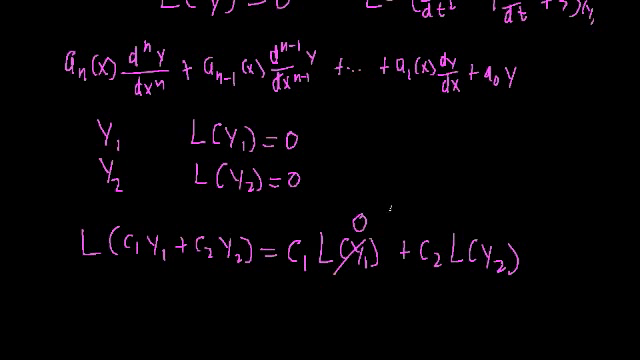 L(Y) = 0 L = (d/dt² + 3)Y
aₙ(x) dⁿy/dxⁿ + aₙ₋₁(x) dⁿ⁻¹y/dxⁿ⁻¹ + ... + a₁(x) dy/dx + a₀ y
Y₁ L(Y₁) = 0
Y₂ L(Y₂) = 0
0
L(C₁Y₁ + C₂Y₂) = C₁ L(Y₁) + C₂ L(Y₂)